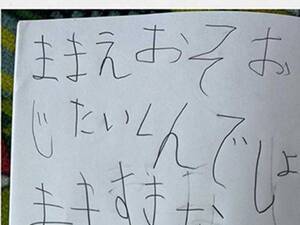 ままえおそお
じたいくんでしょ
ままずま